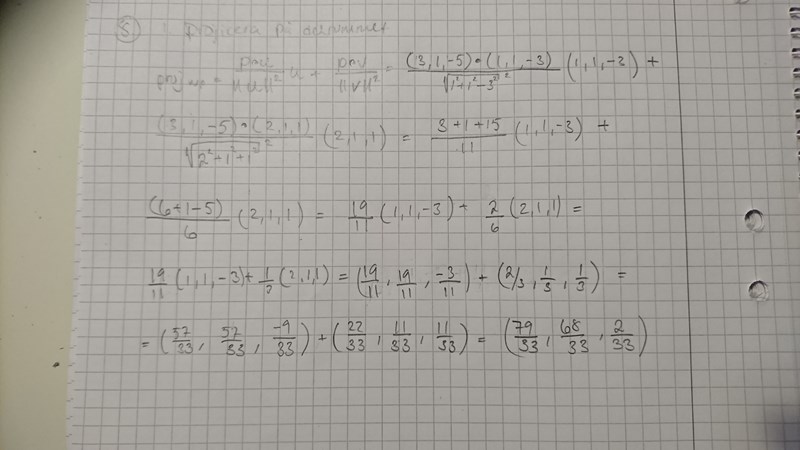 5. Projicera på delrummet
proj = p•u/||u||² u + p•v/||v||² = (3,1,-5)•(1,1,-3)/√(1²+1²-3²)² (1,1,-3) +
(3,1,-5)•(2,1,1)/√(2²+1²+1²)² (2,1,1) = 3+1+15/11 (1,1,-3) +
(6+1-5)/6 (2,1,1) = 19/11 (1,1,-3) + 2/6 (2,1,1) =
19/11 (1,1,-3) + 1/3 (2,1,1) = (19/11, 19/11, -3/11) + (2/3, 1/3, 1/3) =
= (57/33, 57/33, -9/33) + (22/33, 11/33, 11/33) = (79/33, 68/33, 2/33)